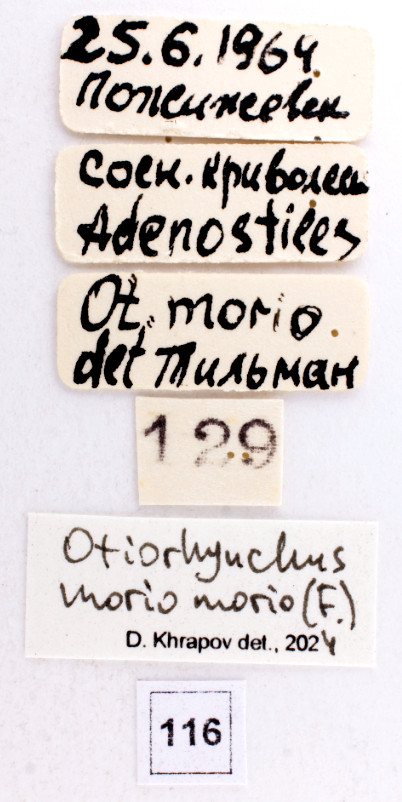 25.6.1964
Пожижевск
сосн. криволес
Adenostiles
Ot. morio
det Тильман
129
Otiorhynchus
morio morio (F.)
D. Khrapov det., 2024
116